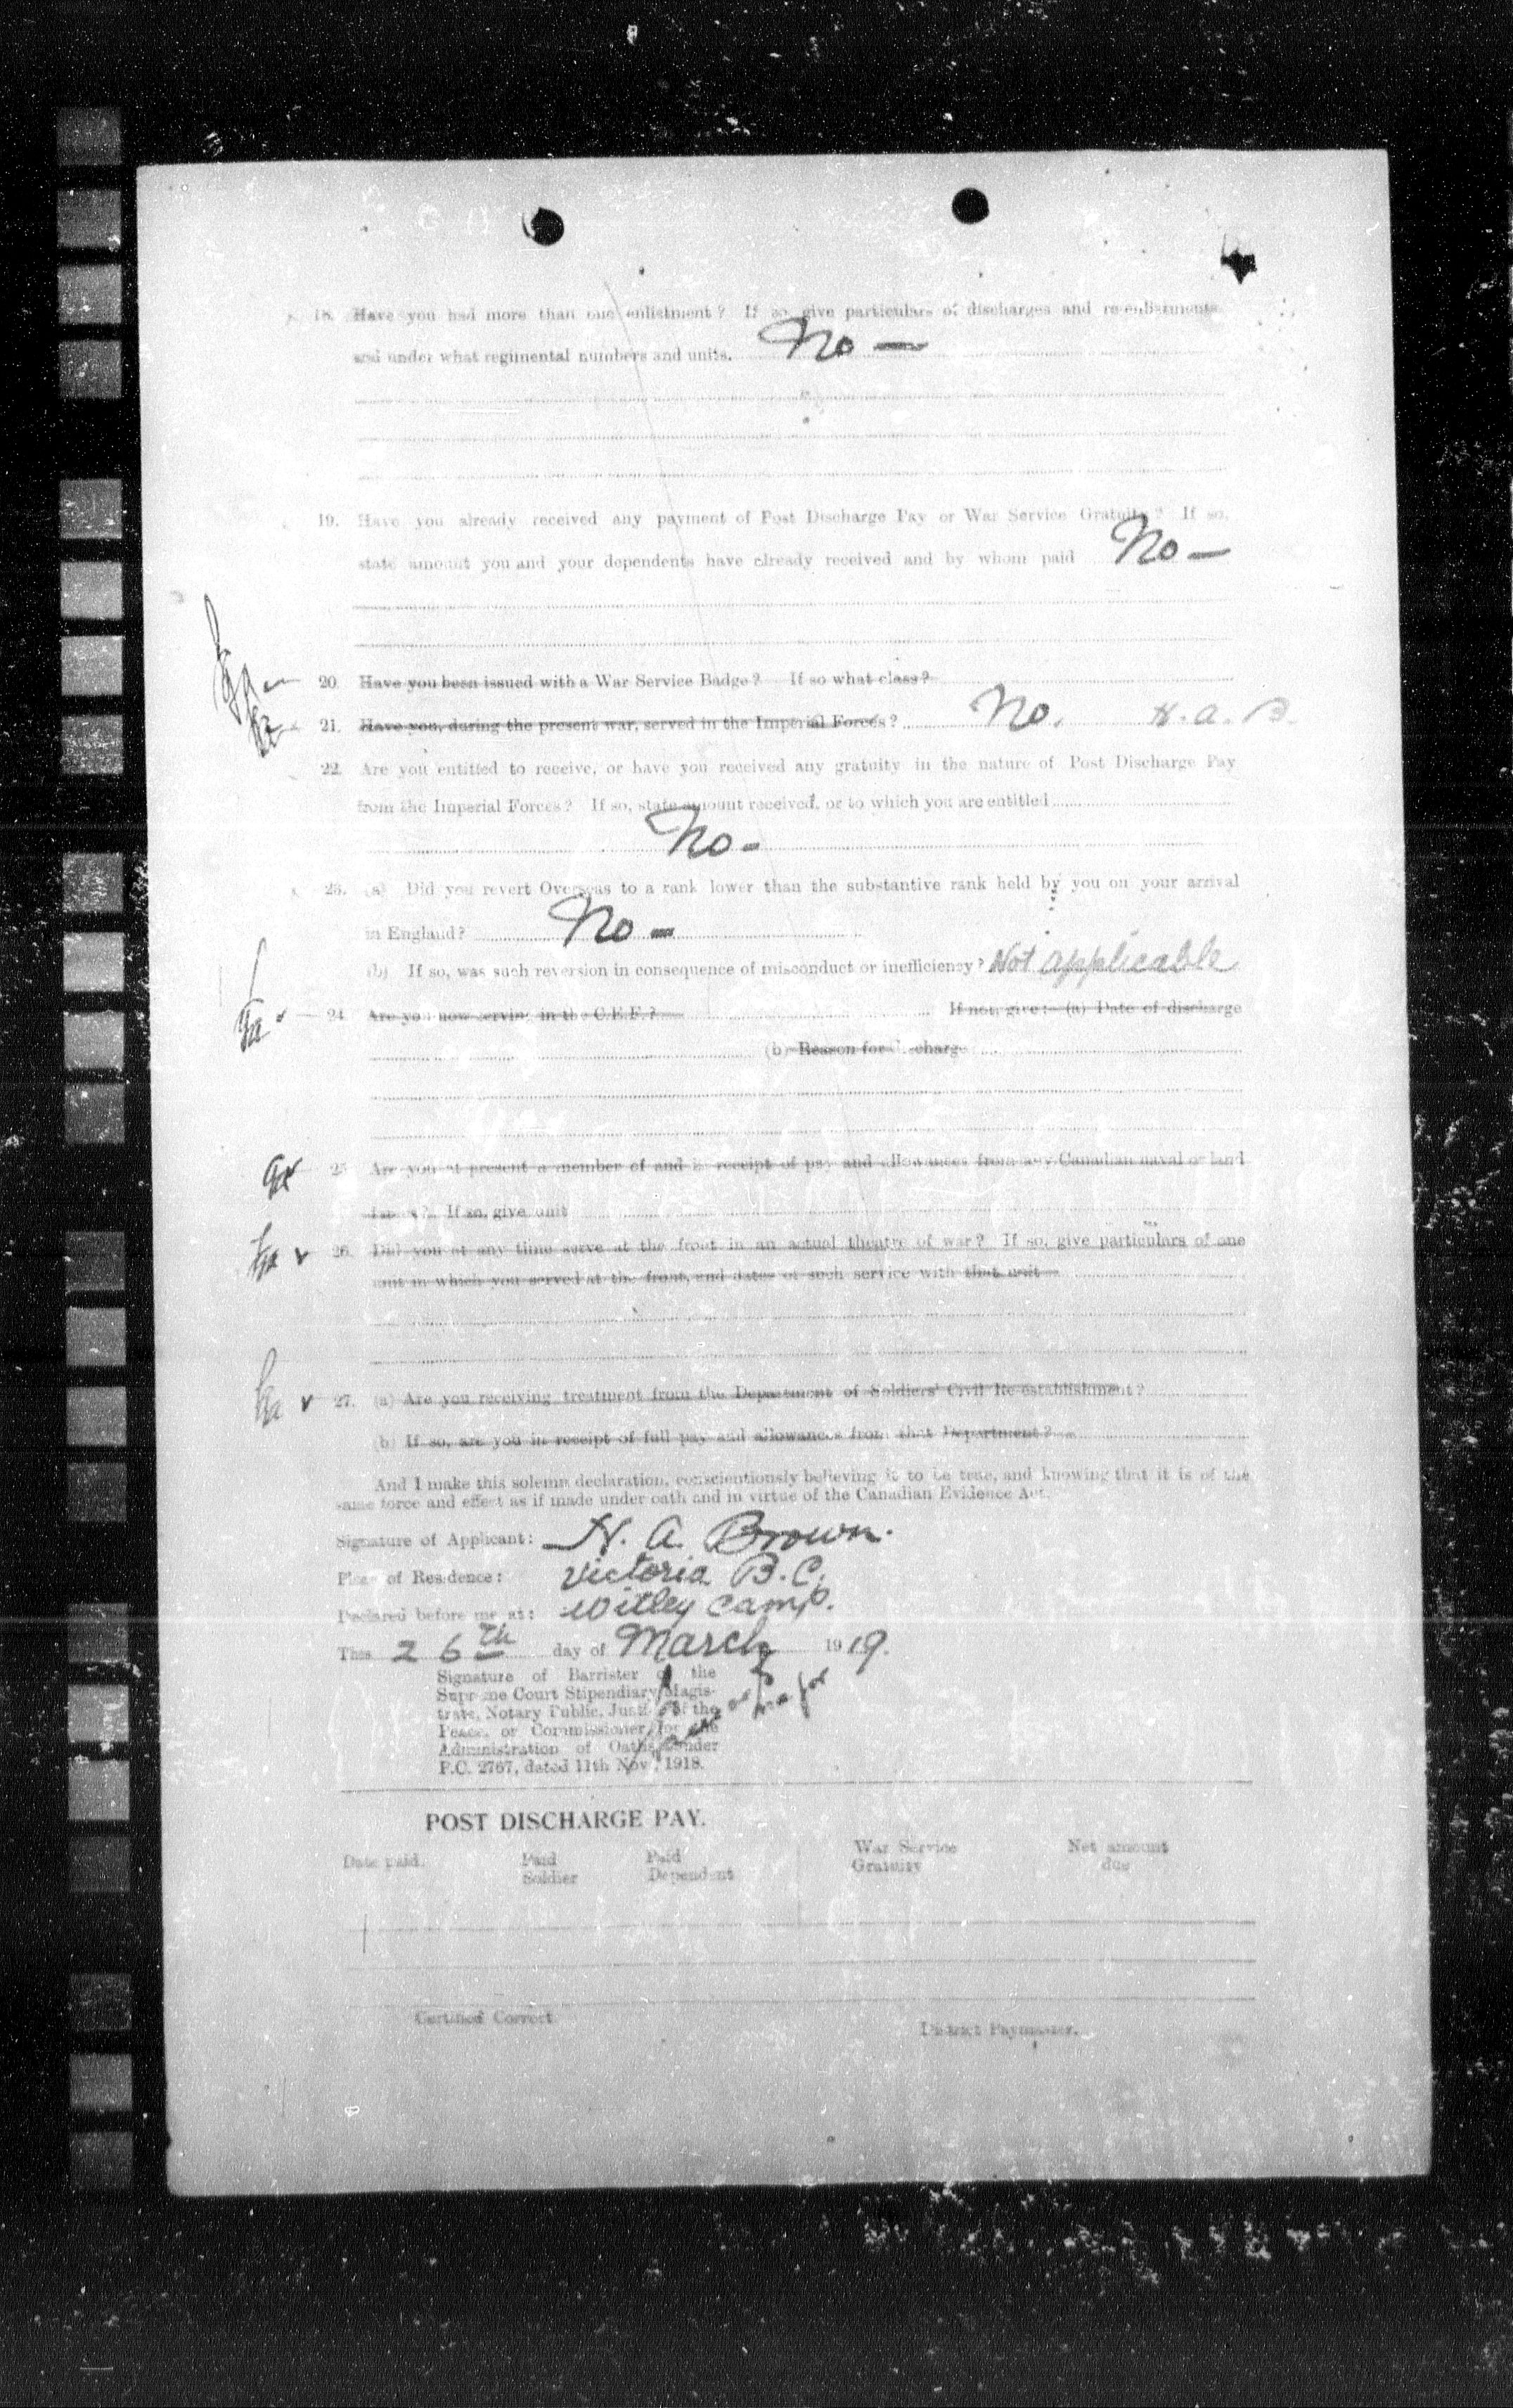 18. Have you had more than one enlistment? If so, give particulars of discharges and re-enlistments
and under what regimental numbers and units. No —
19. Have you already received any payment of Post Discharge Pay or War Service Gratuity? If so,
state amount you and your dependents have already received and by whom paid No —
20. Have you been issued with a War Service Badge? If so what class?
21. Have you, during the present war, served in the Imperial Forces? No. N. A. B.
22. Are you entitled to receive, or have you received any gratuity in the nature of Post Discharge Pay
from the Imperial Forces? If so, state amount received, or to which you are entitled
No -
23. (a) Did you revert Overseas to a rank lower than the substantive rank held by you on your arrival
in England? No -
(b) If so, was such reversion in consequence of misconduct or inefficiency? Not applicable
24. Are you now serving in the C.E.F.? If not, give:- (a) Date of discharge
(b) Reason for discharge
25. Are you at present a member of and in receipt of pay and allowances from any Canadian naval or land
forces? If so, give unit
26. Did you at any time serve at the front in an actual theatre of war? If so, give particulars of one
unit in which you served at the front, and dates of such service with that unit
27. (a) Are you receiving treatment from the Department of Soldiers' Civil Re-establishment?
(b) If so, are you in receipt of full pay and allowances from that Department?
And I make this solemn declaration, conscientiously believing it to be true, and knowing that it is of the
same force and effect as if made under oath and in virtue of the Canadian Evidence Act.
Signature of Applicant: N. A. Brown.
Place of Residence: Victoria B.C.
Declared before me at: Witley Camp.
This 26th day of March 1919.
Signature of Barrister of the
Supreme Court Stipendiary Magis-
trate, Notary Public, Justice of the
Peace, or Commissioner for the
Administration of Oaths under
P.C. 2767, dated 11th Nov., 1918.
major
POST DISCHARGE PAY.
Date paid. Paid Soldier Paid Dependent War Service Gratuity Net amount due
Certified Correct District Paymaster.